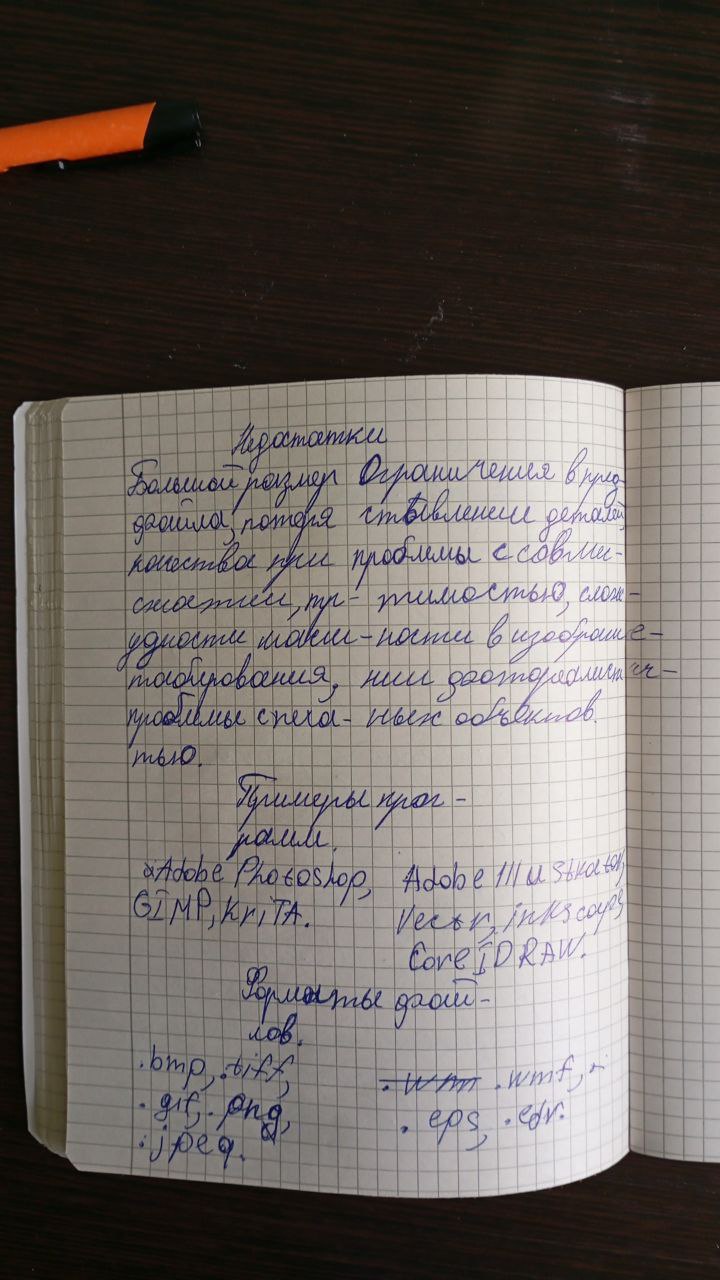 Недостатки
Большой размер
файла, потеря
качества при
сжатии, тр-
удности масш-
табирования,
проблемы с печа-
тью.
Ограничения в пред-
ставлении деталей,
проблемы с совме-
тимостью, слож-
ности в изображе-
нии фотореалистич-
ных объектов.
Примеры прог-
рамм.
Adobe Photoshop,
GIMP, KriTA.
Adobe Illustrator,
Vectr, inkscape,
CorelDRAW.
Форматы фай-
лов.
.bmp, .tiff,
.gif, .png,
.jpeg.
.wmf,
.eps, .cdr.